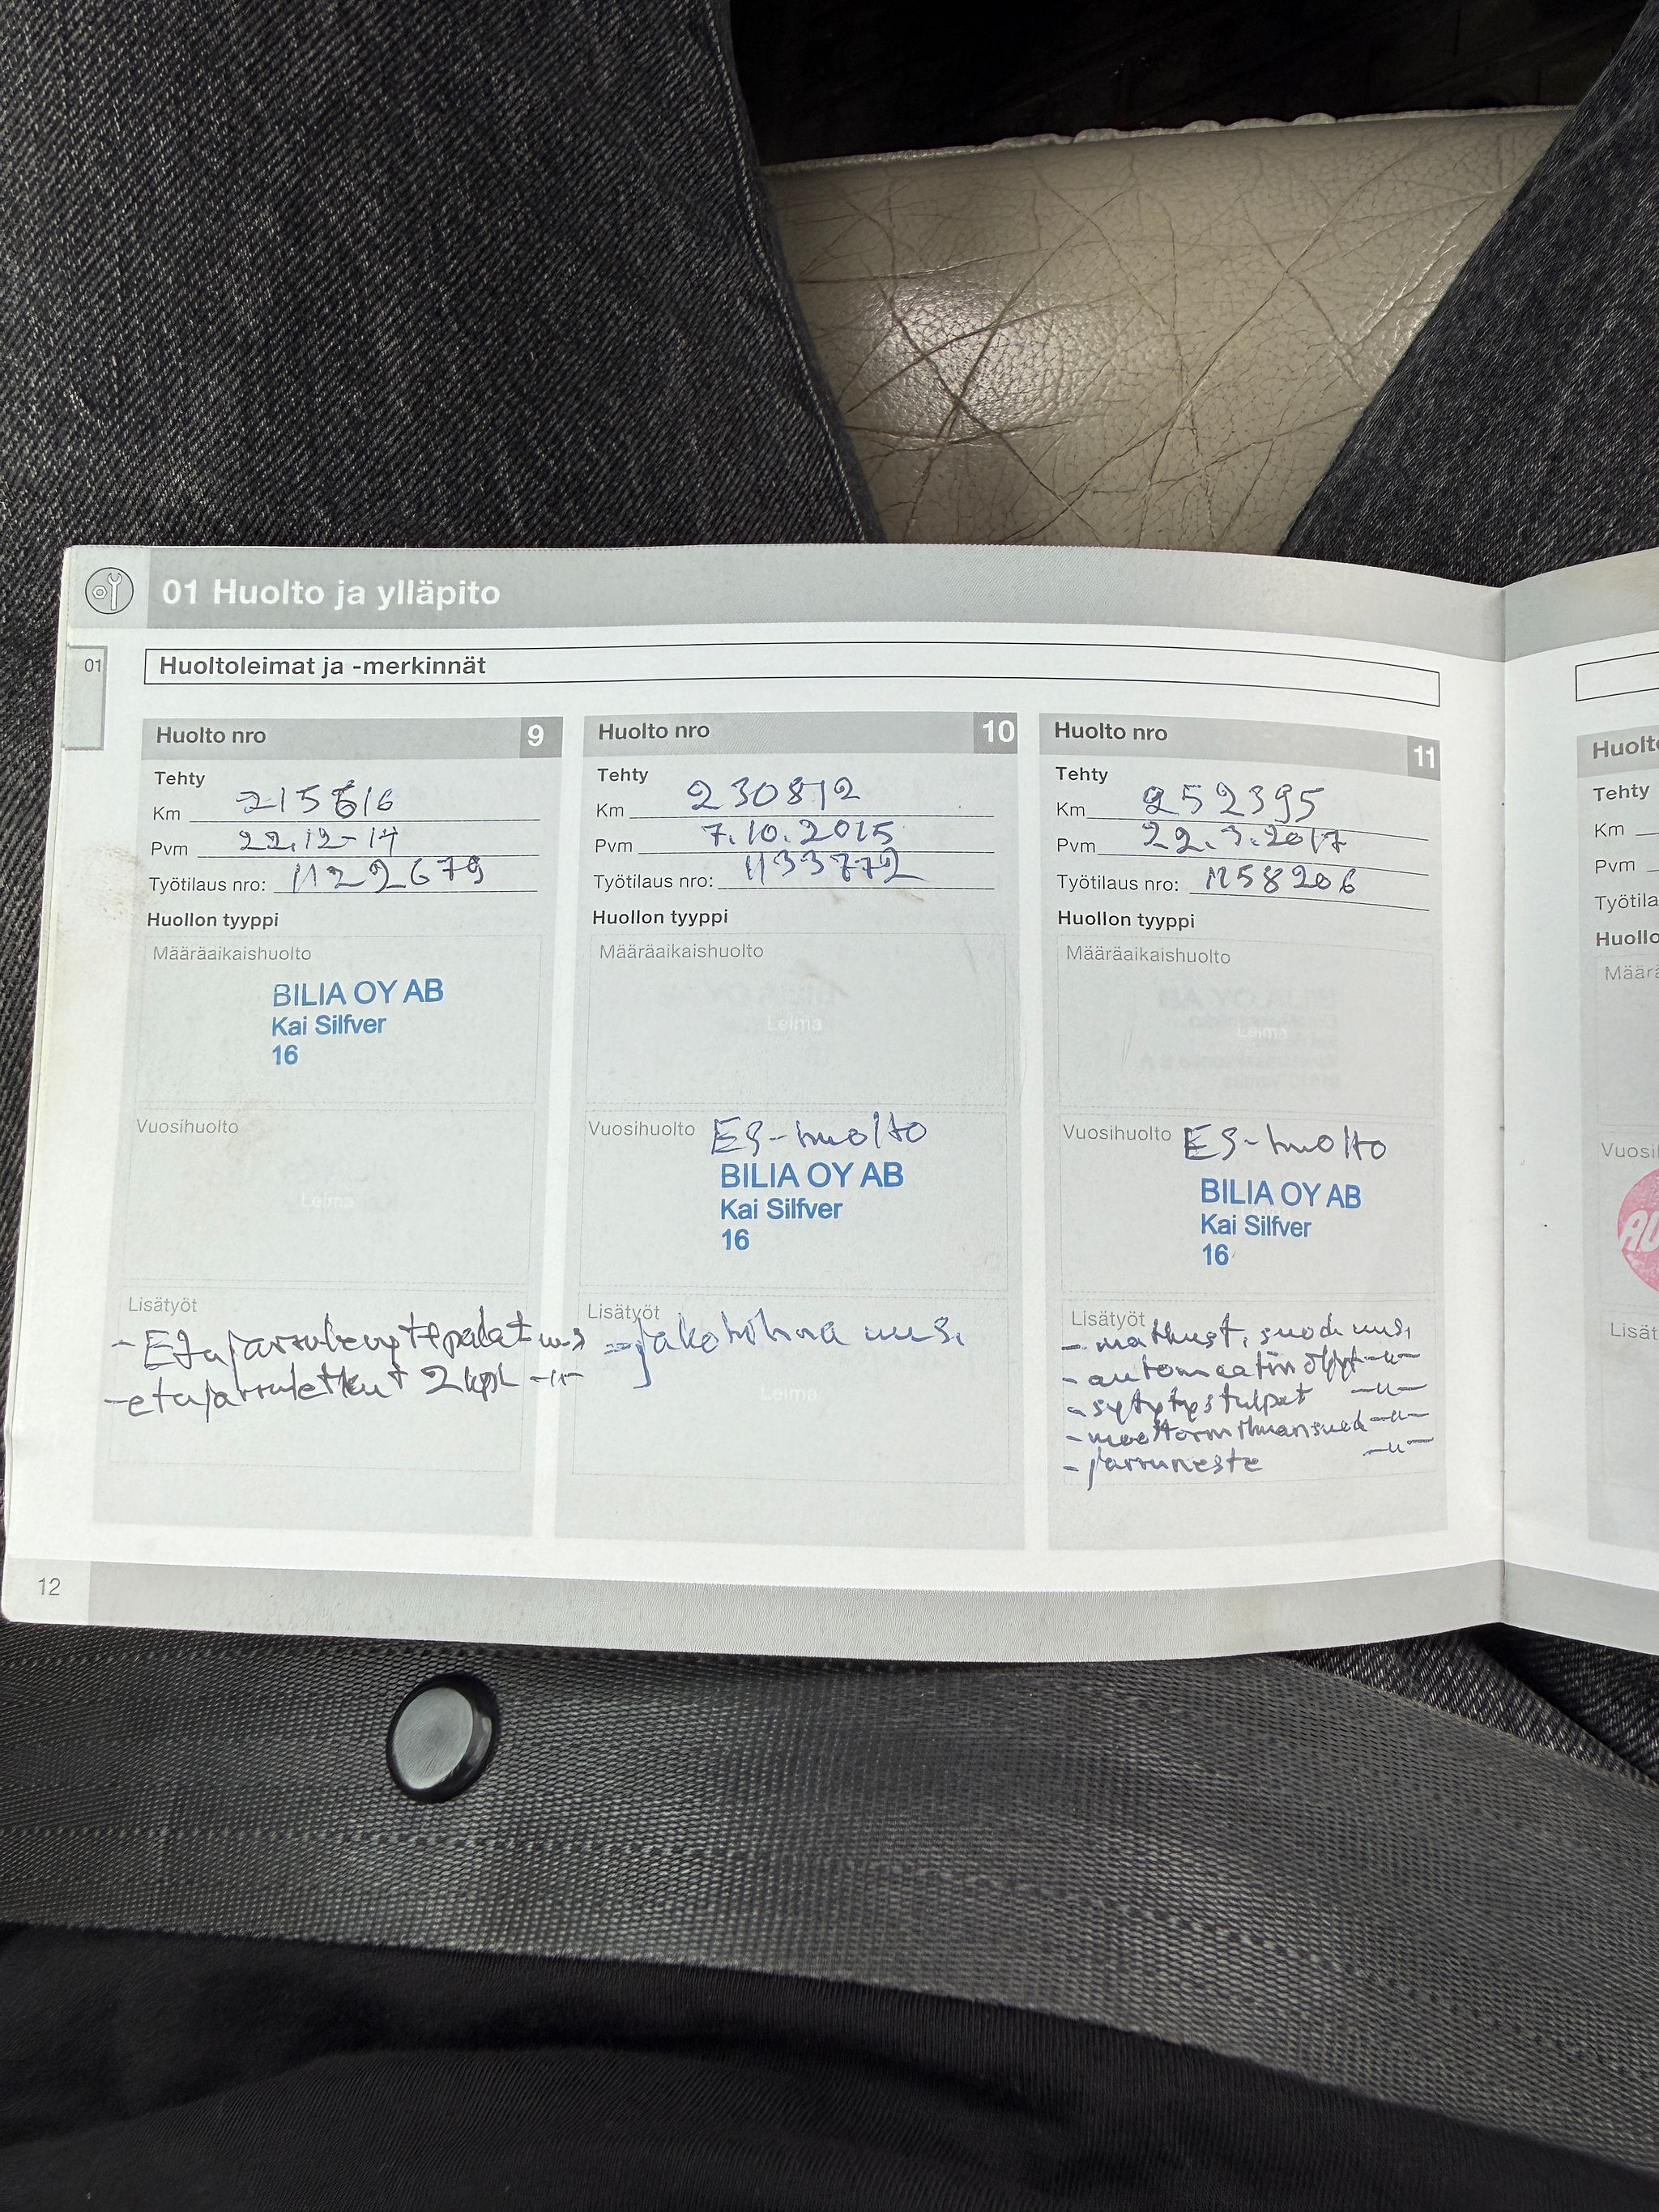 01 Huolto ja ylläpito
01
Huoltoleimat ja -merkinnät
Huolto nro 9
Tehty
Km 215616
Pvm 22.12-14
Työtilaus nro: 1122679
Huollon tyyppi
Määräaikaishuolto
BILIA OY AB
Kai Silfver
16
Vuosihuolto
Leima
Lisätyöt
- Etujarrukevytepalat uus
- etujarruletkut 2 kpl -"-
Huolto nro 10
Tehty
Km 230812
Pvm 7.10.2015
Työtilaus nro: 1133772
Huollon tyyppi
Määräaikaishuolto
Leima
Vuosihuolto ES-huolto
BILIA OY AB
Kai Silfver
16
Lisätyöt
- jakohihna uusi
Leima
Huolto nro 11
Tehty
Km 252395
Pvm 22.3.2017
Työtilaus nro: 1158206
Huollon tyyppi
Määräaikaishuolto
Leima
Vuosihuolto ES-huolto
BILIA OY AB
Kai Silfver
16
Lisätyöt
- suod. uusi
- automaatin öljyt -"-
- sytytystulpat -"-
- moottorin ilmansuod -"-
- jarruneste -"-
12
Huolto
Tehty
Km
Pvm
Työtila
Huollo
Määrä
Vuosi
Lisät